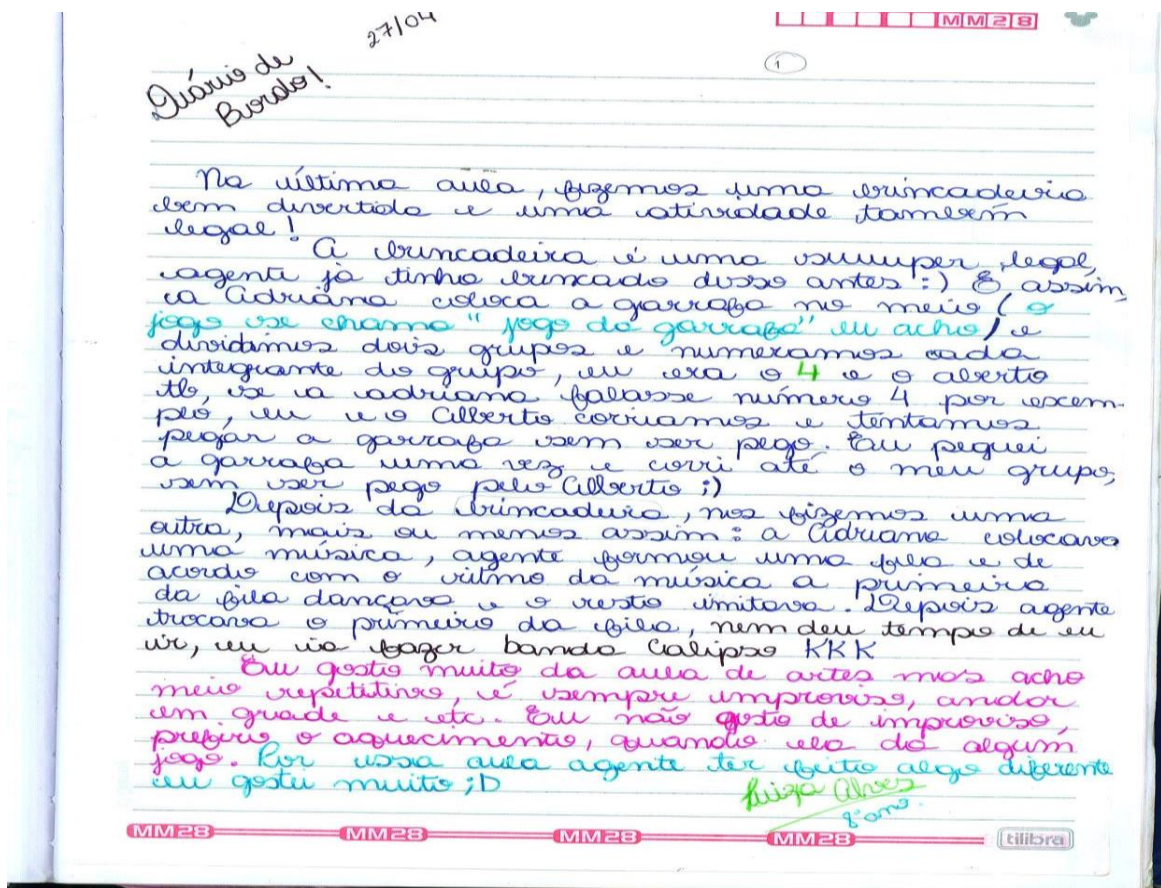 27/04
MM28
Diário de
Bordo!
1
Na última aula, fizemos uma brincadeira
bem divertida e uma atividade também
legal!
A brincadeira é uma suuuper legal,
agente já tinha brincado disso antes :) É assim,
a Adriana coloca a garrafa no meio (o
jogo se chama "jogo da garrafa" eu acho) e
dividimos dois grupos e numeramos cada
integrante do grupo, eu era o 4 e o alberto
tb, se a adriana falasse número 4 por excem-
plo, eu e o Alberto corriamos e tentamos
pegar a garrafa sem ser pego. Eu peguei
a garrafa uma vez e corri até o meu grupo,
sem ser pego pelo Alberto ;)
Depois da brincadeira, nos fizemos uma
outra, mais ou menos assim: a Adriana colocava
uma música, agente formou uma fila e de
acordo com o ritmo da música a primeira
da fila dançava e o resto imitava. Depois agente
trocava o primeiro da fila, nem deu tempo de eu
ir, eu ia fazer banda Calipso KKK
Eu gosto muito da aula de artes mas acho
meio repetitivo, é sempre improviso, andar
em grade e etc. Eu não gosto de improviso,
prefiro o aquecimento, quando ela dá algum
jogo. Por essa aula agente ter feito algo diferente
eu gostei muito ;D
Luiza Alves
8º ano.
MM28 MM28 MM28 MM28 tilibra